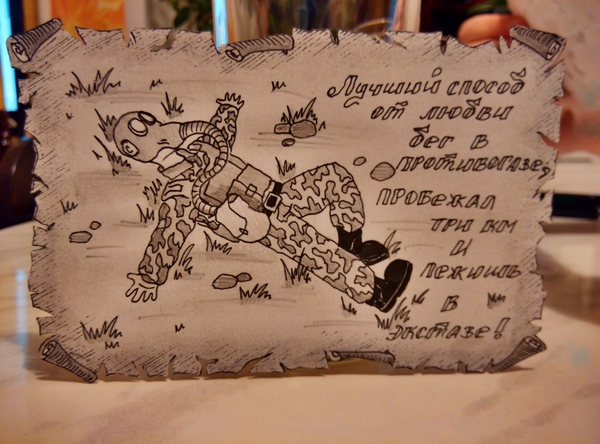 Лучший способ
от любви
бег в
противогазе,
пробежал
три км
и
лежишь
в
экстазе!